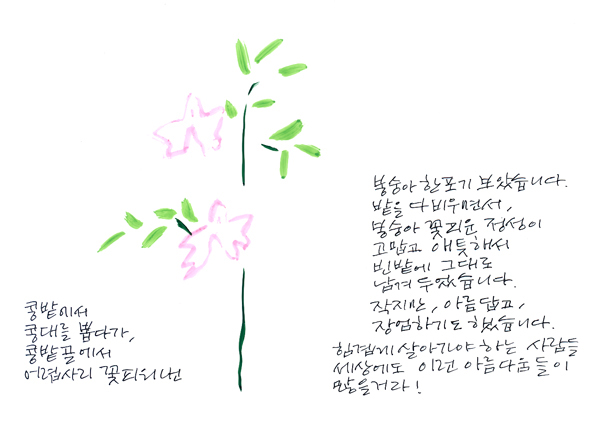 콩밭에서
콩대를 뽑다가,
콩밭골에서
어렵사리 꽃피워낸
봉숭아 한포기 보았습니다.
밭을 다 비우면서,
봉숭아 꽃피운 정성이
고맙고 애틋해서
빈밭에 그대로
남겨 두었습니다.
작지만, 아름답고,
장엄하기도 했습니다.
힘겹게 살아가야 하는 사람들
세상에도 이런 아름다움들이
많을거라!